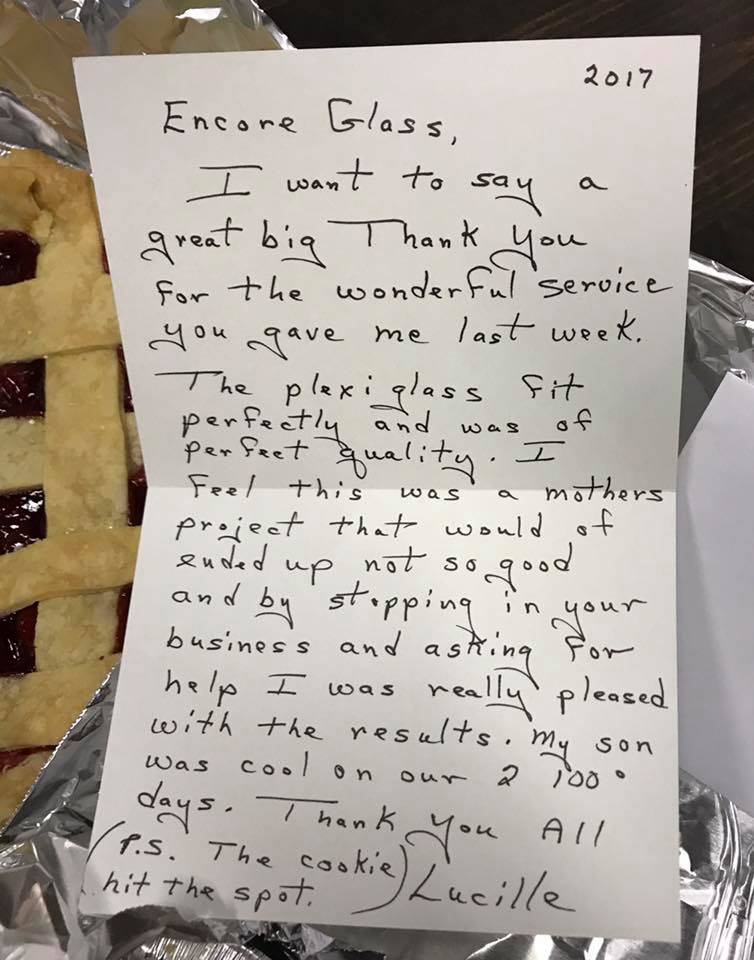 2017
Encore Glass,
I want to say a
great big Thank you
for the wonderful service
you gave me last week.
The plexiglass fit
perfectly and was of
perfect quality. I
feel this was a mothers
project that would of
ended up not so good
and by stopping in your
business and asking for
help I was really pleased
with the results. My son
was cool on our 2 100°
days. Thank you All
(P.S. The cookie
hit the spot.) Lucille